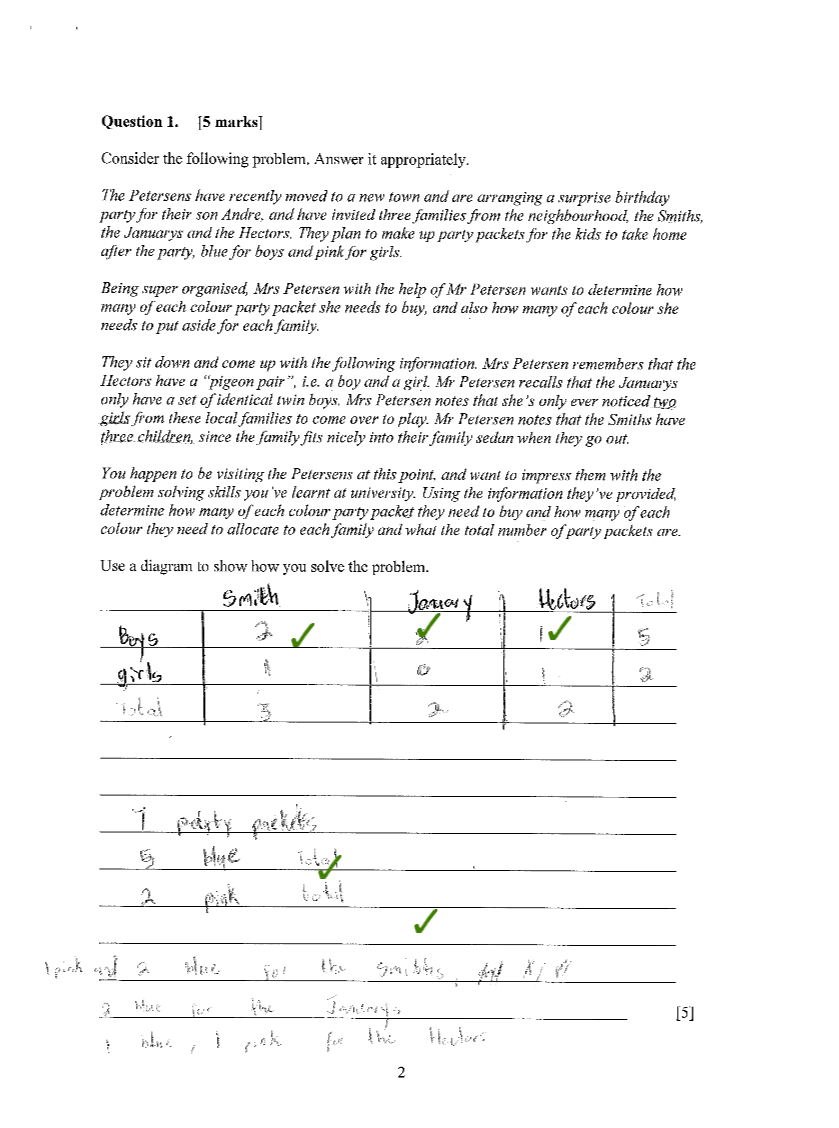 Question 1. [5 marks]
Consider the following problem. Answer it appropriately.
The Petersens have recently moved to a new town and are arranging a surprise birthday
party for their son Andre, and have invited three families from the neighbourhood, the Smiths,
the Januarys and the Hectors. They plan to make up party packets for the kids to take home
after the party, blue for boys and pink for girls.
Being super organised, Mrs Petersen with the help of Mr Petersen wants to determine how
many of each colour party packet she needs to buy, and also how many of each colour she
needs to put aside for each family.
They sit down and come up with the following information. Mrs Petersen remembers that the
Hectors have a "pigeon pair", i.e. a boy and a girl. Mr Petersen recalls that the Januarys
only have a set of identical twin boys. Mrs Petersen notes that she's only ever noticed two
girls from these local families to come over to play. Mr Petersen notes that the Smiths have
three children, since the family fits nicely into their family sedan when they go out.
You happen to be visiting the Petersens at this point, and want to impress them with the
problem solving skills you've learnt at university. Using the information they've provided,
determine how many of each colour party packet they need to buy and how many of each
colour they need to allocate to each family and what the total number of party packets are.
Use a diagram to show how you solve the problem.
Smith January Hectors Total
Boys 2 2 1 5
girls 1 0 1 2
Total 3 2 2
7 party packets
5 blue Total
2 pink total
1 pink and 2 blue for the Smiths,
2 blue for the Januarys
[5]
1 blue, 1 pink for the Hectors
2